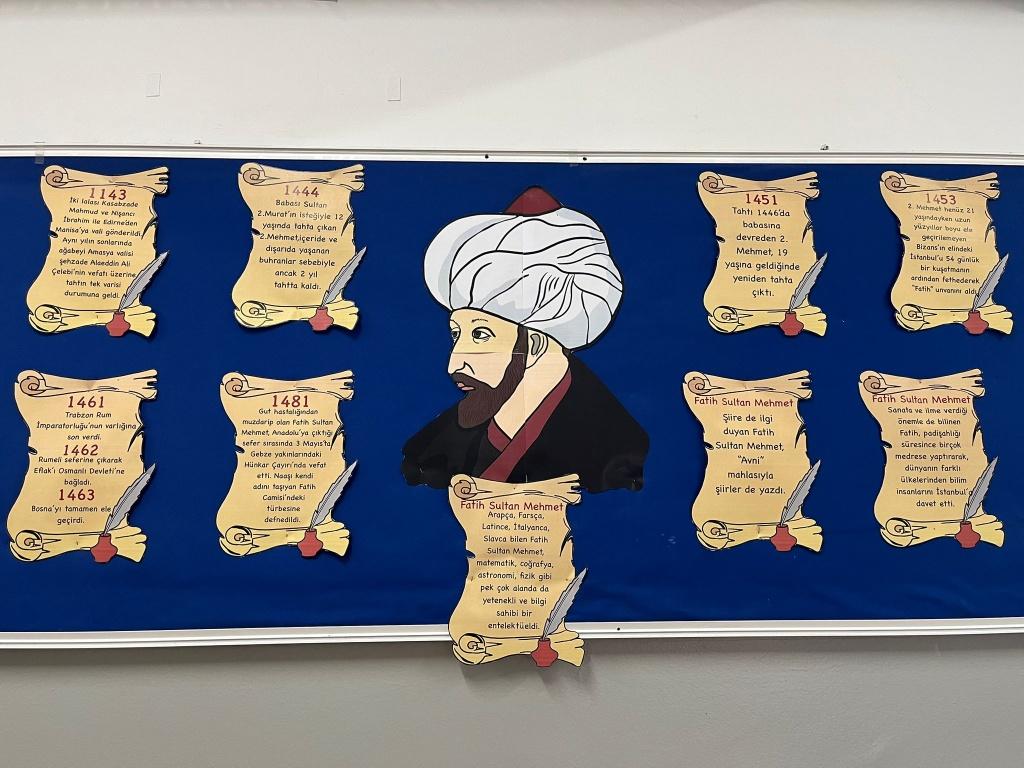 1143
İki lalası Kasabzade
Mahmud ve Nişancı
İbrahim ile Edirne'den
Manisa'ya vali gönderildi.
Aynı yılın sonlarında
ağabeyi Amasya valisi
şehzade Alaeddin Ali
Çelebi'nin vefatı üzerine
tahtın tek varisi
durumuna geldi.
1444
Babası Sultan
2.Murat'ın isteğiyle 12
yaşında tahta çıkan
2.Mehmet,içeride ve
dışarıda yaşanan
buhranlar sebebiyle
ancak 2 yıl
tahtta kaldı.
1451
Tahtı 1446'da
babasına
devreden 2.
Mehmet, 19
yaşına geldiğinde
yeniden tahta
çıktı.
1453
2. Mehmet henüz 21
yaşındayken uzun
yüzyıllar boyu ele
geçirilemeyen
Bizans'ın elindeki
İstanbul'u 54 günlük
bir kuşatmanın
ardından fethederek
"Fatih" unvanını aldı.
1461
Trabzon Rum
İmparatorluğu'nun varlığına
son verdi.
1462
Rumeli seferine çıkarak
Eflak'ı Osmanlı Devleti'ne
bağladı.
1463
Bosna'yı tamamen ele
geçirdi.
1481
Gut hastalığından
muzdarip olan Fatih Sultan
Mehmet, Anadolu'ya çıktığı
sefer sırasında 3 Mayıs'ta
Gebze yakınlarındaki
Hünkar Çayırı'nda vefat
etti. Naaşı kendi
adını taşıyan Fatih
Camisi'ndeki
türbesine
defnedildi.
Fatih Sultan Mehmet
Arapça, Farsça,
Latince, İtalyanca,
Slavca bilen Fatih
Sultan Mehmet,
matematik, coğrafya,
astronomi, fizik gibi
pek çok alanda da
yetenekli ve bilgi
sahibi bir
entelektüeldi.
Fatih Sultan Mehmet
Şiire de ilgi
duyan Fatih
Sultan Mehmet,
"Avni"
mahlasıyla
şiirler de yazdı.
Fatih Sultan Mehmet
Sanata ve ilme verdiği
önemle de bilinen
Fatih, padişahlığı
süresince birçok
medrese yaptırarak,
dünyanın farklı
ülkelerinden bilim
insanlarını İstanbul'a
davet etti.